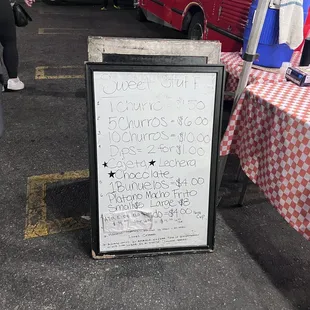 Sweet Stuff
1 Churro $1.50
5 Churros - $6.00
10 Churros = $10.00
Dips = 2 for $1.00
★ Cajeta ★ Lechera
★ Chocolate ★
1 Buñuelos - $4.00
Platano Macho Frito
Small $5 Large $8
$4.00